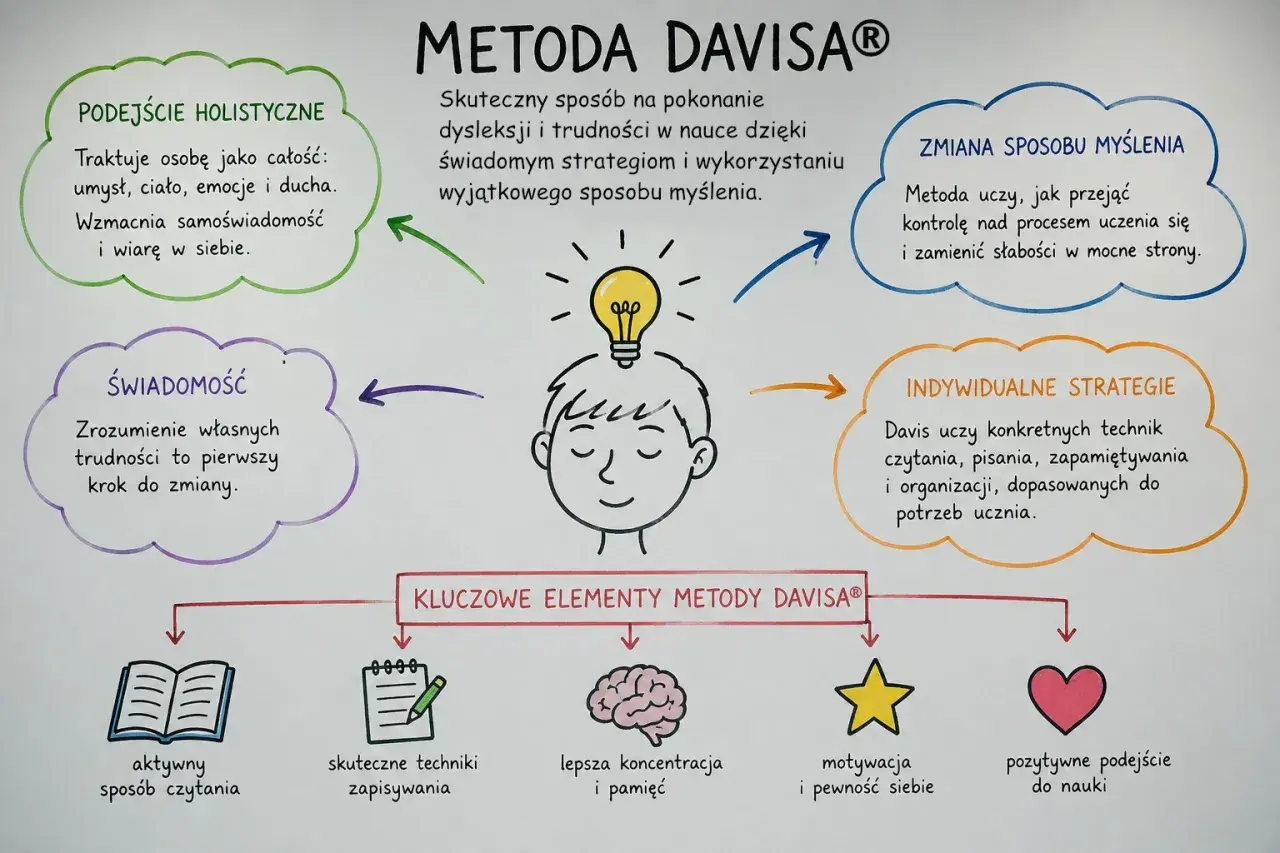 METODA DAVISA®
Skuteczny sposób na pokonanie
dysleksji i trudności w nauce dzięki
świadomym strategiom i wykorzystaniu
wyjątkowego sposobu myślenia.
PODEJŚCIE HOLISTYCZNE
Traktuje osobę jako całość:
umysł, ciało, emocje i ducha.
Wzmacnia samoświadomość
i wiarę w siebie.
ZMIANA SPOSOBU MYŚLENIA
Metoda uczy, jak przejąć
kontrolę nad procesem uczenia się
i zamienić słabości w mocne strony.
ŚWIADOMOŚĆ
Zrozumienie własnych
trudności to pierwszy
krok do zmiany.
INDYWIDUALNE STRATEGIE
Davis uczy konkretnych technik
czytania, pisania, zapamiętywania
i organizacji, dopasowanych do
potrzeb ucznia.
KLUCZOWE ELEMENTY METODY DAVISA®
aktywny
sposób czytania
skuteczne techniki
zapisywania
lepsza koncentracja
i pamięć
motywacja
i pewność siebie
pozytywne podejście
do nauki